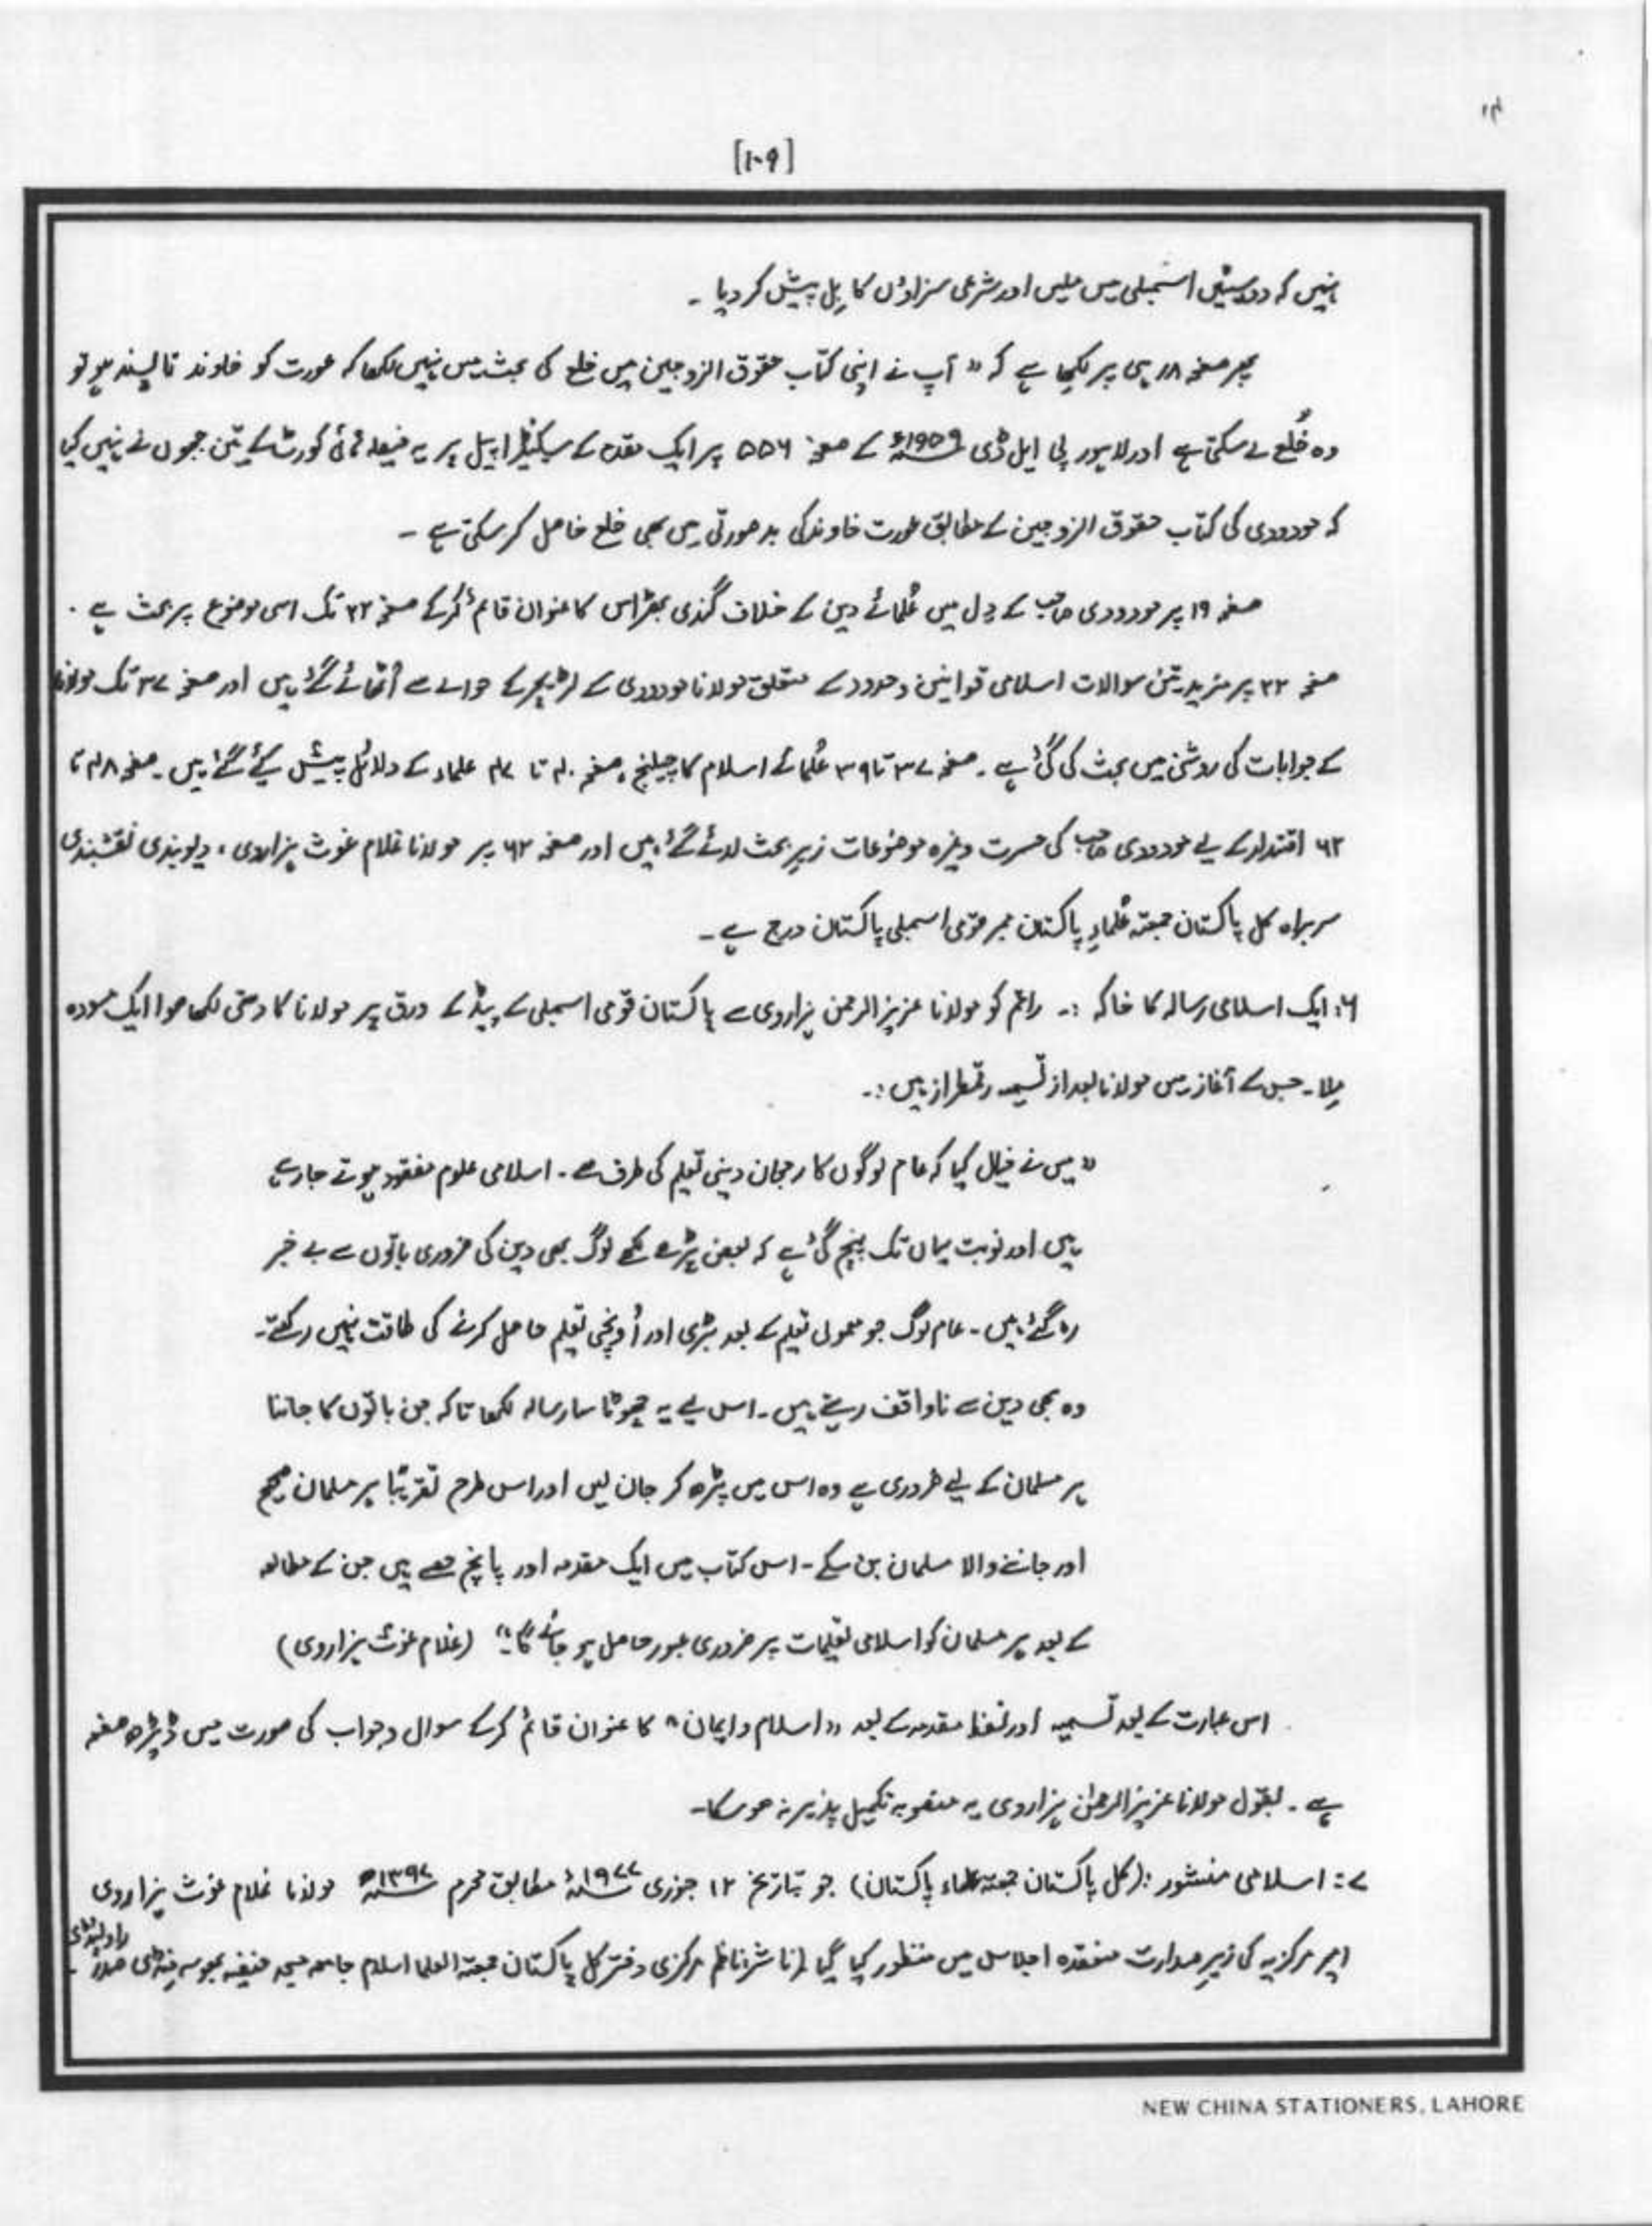 [۱۰۹]
نہیں کہ دو سیٹیں اسمبلی میں ملیں اور شرعی سزاؤں کا بل پیش کر دیا ۔
پھر صفحہ ۱۸ ہی پر لکھا ہے کہ " آپ نے اپنی کتاب حقوق الزوجین میں خلع کی بحث میں نہیں لکھا کہ عورت کو خاوند نا پسند ہو تو
وہ خُلع لے سکتی ہے اور لاہور پی ایل ڈی ۱۹۵۹ء کے صفحہ ۵۵۶ پر ایک مقدمہ کے سیکنڈ اپیل پر یہ فیصلہ ہائی کورٹ کے تین ججوں نے نہیں کیا
کہ مودودی کی کتاب حقوق الزوجین کے مطابق عورت خاوند کی بد صورتی میں بھی خلع حاصل کر سکتی ہے ۔
صفحہ ۱۹ پر مودودی صاحب کے دِل میں عُلمائے دین کے خلاف گندی بھڑاس کا عنوان قائم کرکے صفحہ ۳۲ تک اسی موضوع پر بحث ہے ۔
صفحہ ۳۲ پر مزید تین سوالات اسلامی قوانین وحدود کے متعلق مولانا مودودی کے لٹریچر کے حوالے سے اُٹھائے گئے ہیں اور صفحہ ۳۷ تک مولانا
کے جوابات کی روشنی میں بحث کی گئی ہے ۔ صفحہ ۳۷ تا ۳۹ عُلمائے اسلام کا چیلنج، صفحہ ۴۰ تا ۴۷ علماء کے دلائل پیش کیئے گئے ہیں ۔ صفحہ ۴۸ تا
۶۲ اقتدار کے لیے مودودی صاحب کی حسرت وغیرہ موضوعات زیرِ بحث لائے گئے ہیں اور صفحہ ۶۲ پر مولانا غلام غوث ہزاروی ، دیوبندی نقشبندی
سربراہ کل پاکستان جمعیۃ عُلماءِ پاکستان ممبر قومی اسمبلی پاکستان درج ہے ۔
۶: ایک اسلامی رسالہ کا خاکہ :۔ راقم کو مولانا عزیز الرحمن ہزاروی سے پاکستان قومی اسمبلی کے پیڈ کے ورق پر مولانا کا دستی لکھا ہوا ایک مسودہ
مِلا ۔ جس کے آغاز میں مولانا بعد از تسمیہ رقمطراز ہیں :۔
" میں نے خیال کیا کہ عام لوگوں کا رجحان دینی تعلیم کی طرف ہے ۔ اسلامی علوم مفقود ہوتے جا رہے
ہیں اور نوبت یہاں تک پہنچ گئی ہے کہ بعض پڑھے لکھے لوگ بھی دین کی ضروری باتوں سے بے خبر
رہ گئے ہیں ۔ عام لوگ جو معمولی تعلیم کے بعد بڑی اور اُونچی تعلیم حاصل کرنے کی طاقت نہیں رکھتے ۔
وہ بھی دین سے ناواقف رہتے ہیں ۔ اس لیے یہ چھوٹا سا رسالہ لکھا تا کہ جن باتوں کا جاننا
ہر مسلمان کے لیے ضروری ہے وہ اس میں پڑھ کر جان لیں اور اس طرح تقریباً ہر مسلمان صحیح
اور جاننے والا مسلمان بن سکے ۔ اس کتاب میں ایک مقدمہ اور پانچ حصے ہیں جن کے مطالعہ
کے بعد ہر مسلمان کو اسلامی تعلیمات پر ضروری عبور حاصل ہو جائے گا ۔" (غلام غوث ہزاروی)
اس عبارت کے بعد تسمیہ اور لفظ مقدمہ کے بعد " اسلام و ایمان " کا عنوان قائم کرکے سوال و جواب کی صورت میں ڈیڑھ صفحہ
ہے ۔ بقول مولانا عزیز الرحمٰن ہزاروی یہ منصوبہ تکمیل پذیر نہ ہو سکا ۔
۷: اسلامی منشور :(کل پاکستان جمعیۃ علماء پاکستان) جو بتاریخ ۱۲ جنوری ۱۹۷۷ء مطابق محرم ۱۳۹۷ھ مولانا غلام غوث ہزاروی
امیر مرکزیہ کی زیرِ صدارت منعقدہ اجلاس میں منظور کیا گیا (ناشر: ناظم مرکزی دفتر کل پاکستان جمعیۃ العلما اسلام جامعہ مسجد حنفیہ بھوسہ منڈی صدر راولپنڈی
NEW CHINA STATIONERS, LAHORE